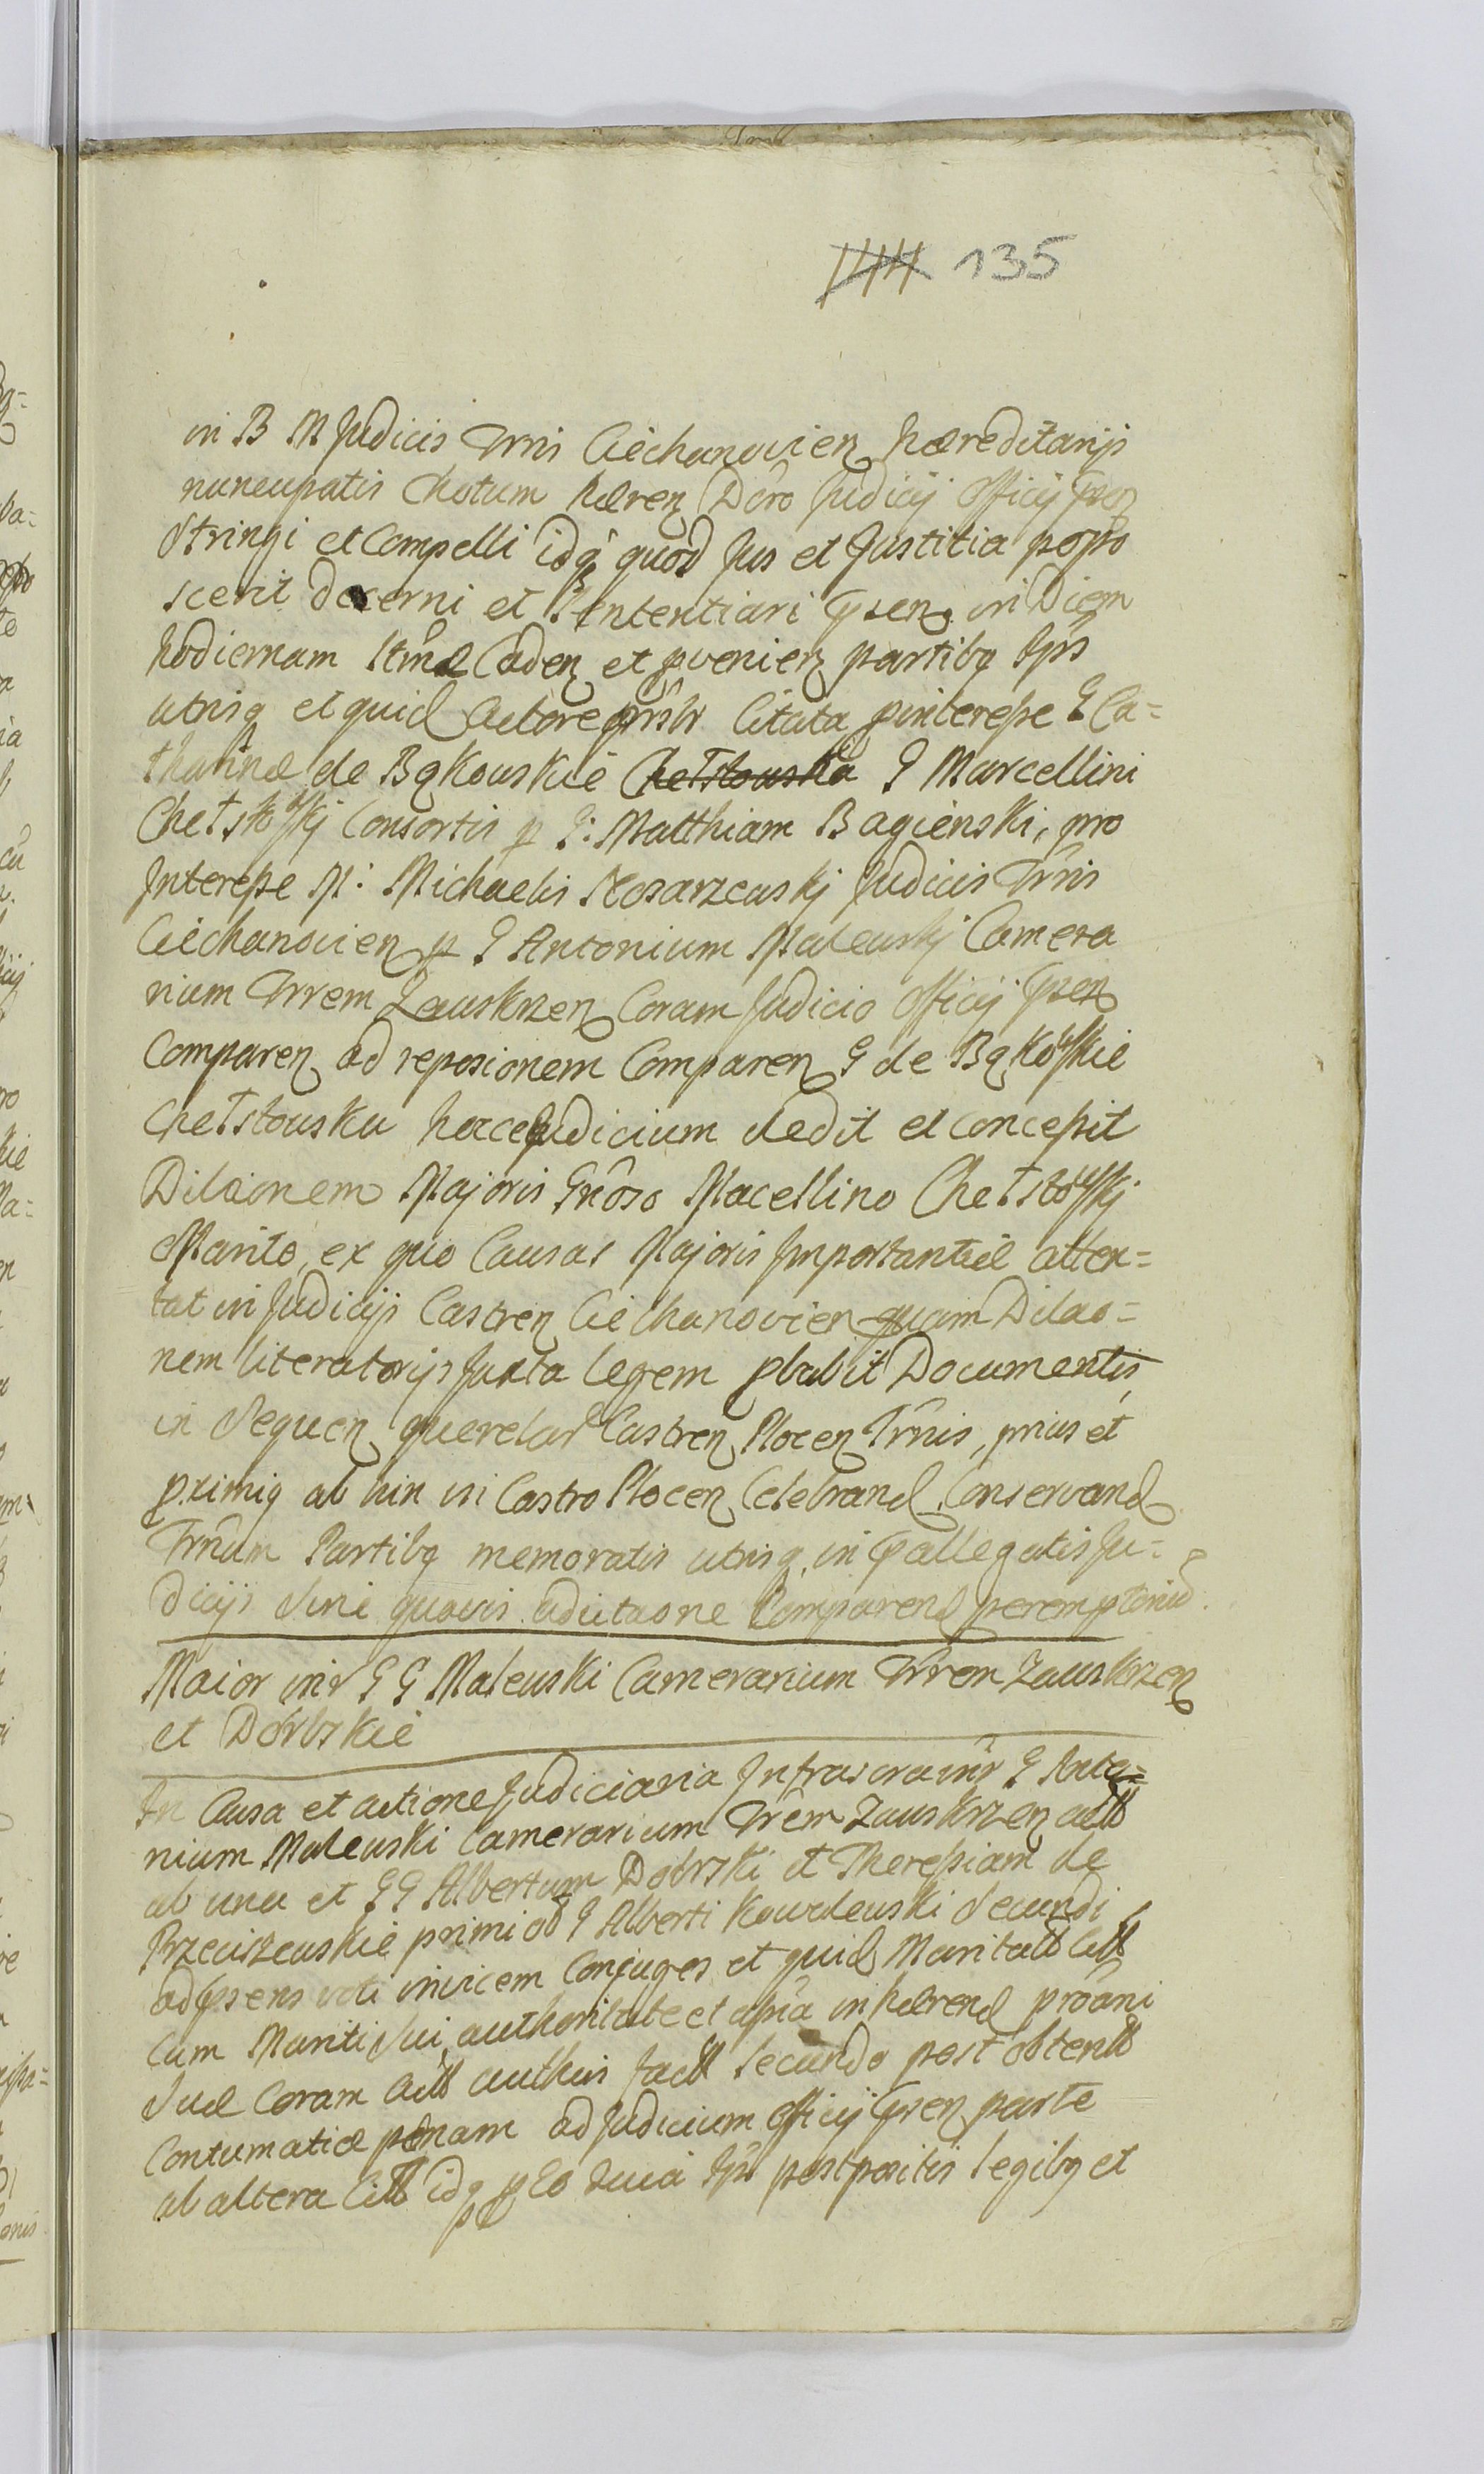 135
in B M Judicis Trris Ciechanovien hæreditarijs
nuncupatis Chotum hæren Dōro Judicij Officij pren
Stringi et Compelli idq quod Jus et Justitia popo
scerit decerni et Sententiari pren in Diem
hodiernam Caden et pvenien partibq Ipīs
utrisq et quid Actore Citata pinteresse G Ca=
tharinæ de Bąkouskie Chetstouska G Marcellini
Chetstowskj Consortis p G: Matthiam Bagienski, pro
Interesse M: Michaelis Nosarzeuskj Judicis Trris
Ciechanovien p G Antonium Maleuskj Camera
rium Trrem Zauskrzen Coram Judicio Officij pren
Comparen ad reposionem Comparen G de Bąkowskie
Chetstouska hocce Judicium dedit et concessit
Dilaōnem Majoris Gnōso Macellino Chetstowskj
Marito, ex quo Causas Majoris Importantiæ atten=
tat in Judicijs Castren Ciechanovien quam Dilao=
nem literatorijs Juxta legem pbabit Documentis
in Sequen querelar Castren Plocen Trmis, prius et
primiq ab hin in Castro Plocen Celebrand Conservand
Trmum Partibq memoratis utrisq in pallegatis Ju=
dicijs Sine quavis aditaone Comparend peremptoriū.
Maior intr G G Maleuski Camerarium Trrem Zauskrzen
et Dobrskie
In Causa et actione Judiciaria Infrascra intr G Anto=
nium Maleuski Camerarium Trrem Zauskrzen actt
ab una et G G Albertum Dobrski et Theressiam de
Przeciszeuskie primi G Alberti Kowaleuski Secundi
ad psens voti invicem Conjuges et quid Maritatt Citt
Cum Mariti Sui authoritate et in hærend
Suæ Coram Actt facitt Secundo post obtentt
Contumatiæ pœnam ad Judicium Officij pren parte
ab altera Citt idq p Eo quia Ipi postpositis legibq et